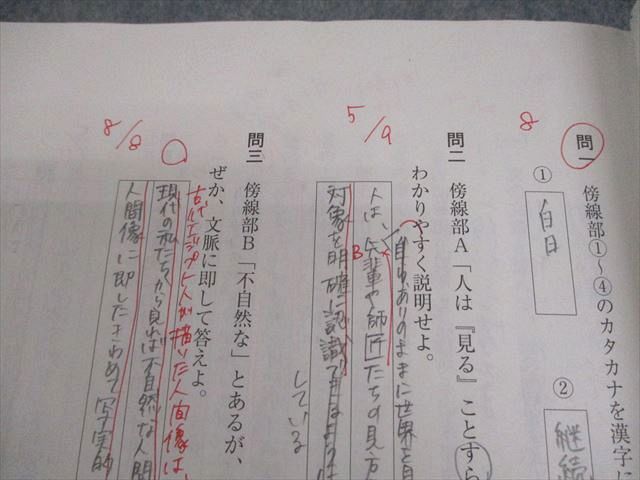 問一 傍線部①～④のカタカナを漢字に
8
① 白日
② 継続
問二 傍線部A「人は『見る』ことすら
わかりやすく説明せよ。
5/9
自分がありのままに世界を
人は、先輩や師匠たちの見方
B
対象を明確に認識できるように
している
問三 傍線部B「不自然な」とあるが、
ぜか、文脈に即して答えよ。
8/8
古代エジプト人が描いた人間像は、
現代の私たちから見れば不自然な人間
人間像に即したきわめて写実的